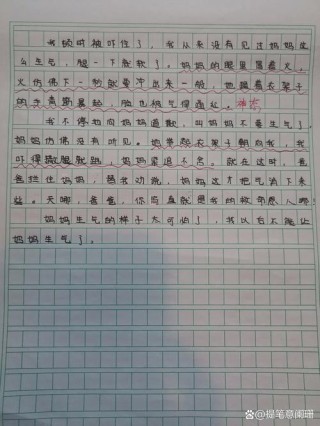 我顿时被吓住了，我从来没有见过妈妈这
么生气，腿一下就软了。妈妈的眼里冒着火，
火仿佛下一秒就要冲出来一般，她握着衣架子
的手青筋暴起，脸也被气得通红。神态
我不停地向妈妈道歉，叫妈妈不要生气了，
妈妈仿佛没有听见。妈妈举起衣架子朝向我，我
吓得撒腿就跑，妈妈紧追不舍。就在这时，爸
爸拦住妈妈，替我劝说，妈妈这才把气消下来
些。天哪，爸爸，你简直就是我的救命恩人哪！
妈妈生气的样子太可怕了，我以后不能让
妈妈生气了。
@提笔意阑珊